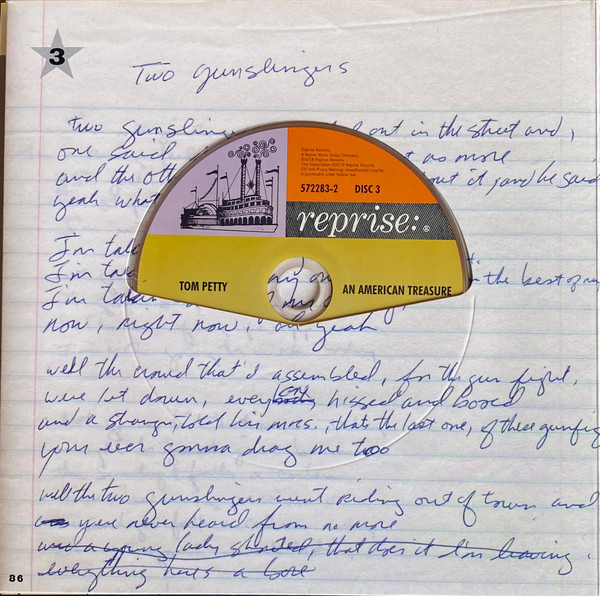 3
Two gunslingers
two gunslinge out in the street and,
one said no more
and the oth out it, and he said
yeah what
I'm talk
I'm ta the best of my
I'm takin my
now, right now, oh yeah
well the crowd that'd assembled, for the gun fight,
were let down, everybody one hissed and booed
and a stranger, told his mrs., thats the last one, of these gunfig
your ever gonna drag me too
well the two gunslingers went riding out of town and
were never heard from no more
and a young lady shouted, that does it I'm leaving.
everything heres a bore
86
Reprise Records,
A Warner Music Group Company.
572283-2 DISC 3
reprise: ®
TOM PETTY
AN AMERICAN TREASURE